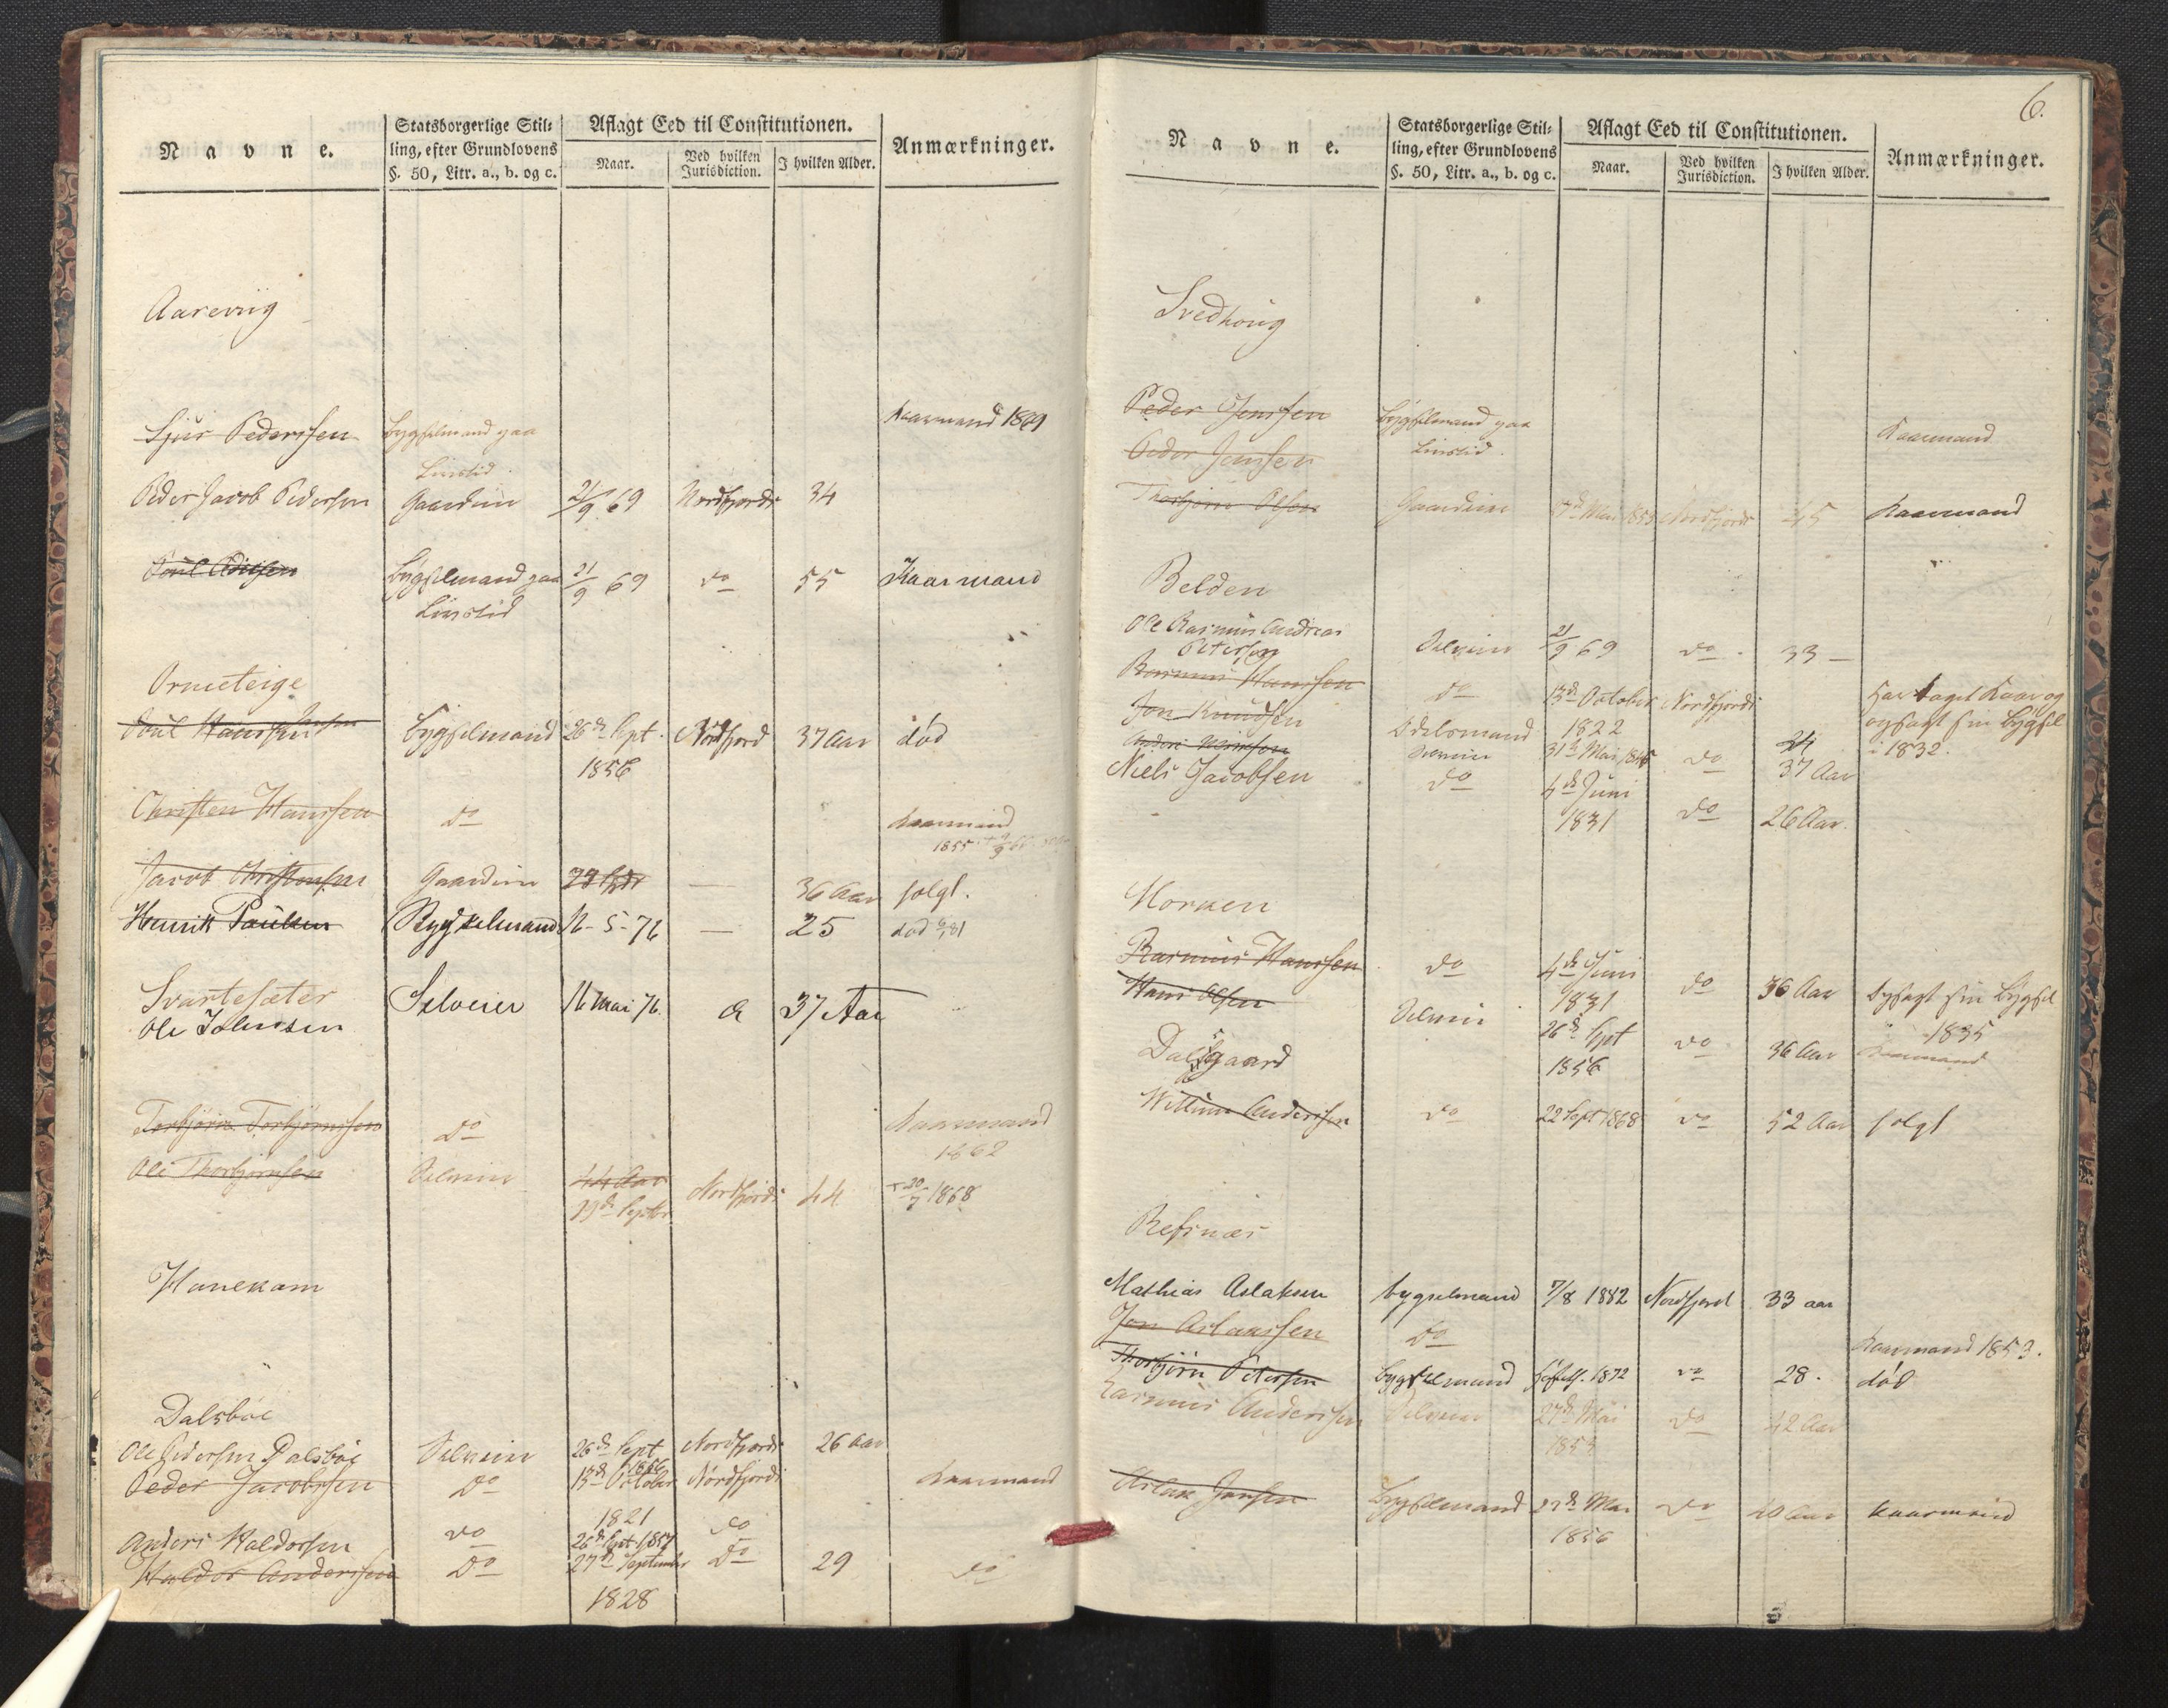 Navne.
Statsborgerlige Stil-
ling, efter Grundlovens
§. 50, Litr. a., b. og c.
Aflagt Eed til Constitutionen.
Naar.
Ved hvilken
Jurisdiction.
I hvilken Alder.
Anmærkninger.
Aareviig
Sjur Pederssen Bygselmand paa Kaarmand 1869
Livstid
Peder Jacob Pederssen Gaardeier 21/9 69 Nordfjords 34
Bygselmand paa 21/9 69 do 55 Kaarmand
Livstid
Ormeteige
Poul Hanssen Bygselmand 26de Sept. Nordfjord 37 Aar død
1856
Christen Hanssen do Kaarmand
1855
Jacob Christensen Gaardeier — 36 Aar solgt.
Henrik Paulsen Bygselmand 16-5-76 — 25 død
Svartesæter Selveier 16 Mai 76. 37 Aar
Ole Johnsen
Torbjørn Torbjørnssen Do Kaarmand
1862
Ole Thorbjørnsen Selveier 44 Aar Nordfjords 44 + 20/7 1868
29de Septbr
Hanekam
Dalsbøe
Ole Pedersen Dalsbøe Selveier 26de Sept Nordfjords 26 Aar
1856
Peder Jacobssen Do 13de October Nordfjords Kaarmand
1821
Anders Haldorsen do 26de Sept 1857 do
Haldor Anderssen Do 27de September Do 29 do
1828
6.
Navne.
Statsborgerlige Stil-
ling, efter Grundlovens
§. 50, Litr. a., b. og c.
Aflagt Eed til Constitutionen.
Naar.
Ved hvilken
Jurisdiction.
I hvilken Alder.
Anmærkninger.
Svedhoug
Peder Jenssen Bygselmand paa Kaarmand
Peder Jenssen Livstid.
Thorbjørn Olsen Gaardeier Mai 1853 Nordfjords 45 Kaarmand
Belden
Ole Rasmus Andreas
Petersen Selveier 21/9 69 do 33 —
Rasmus Hanssen do 13de October Nordfjords Har taget Kaar og
1822 opsagt sin Bygsel
i 1832.
Jon Knudsen Odelsmand
Selveier 31te Mai 1845 do 37 Aar
Niels Jacobsen do 4de Juni
1831 do 26 Aar.
Morken
Rasmus Hanssen do 4de Juni do 36 Aar opsagt sin Bygsel
1831 1835
Hans Olsen Selveier 26de Sept do 36 Aar Kaarmand
1856
Dalsgaard
Willum Anderssen do 22 Sept 1868 do 52 Aar solgt
Refsnæs
Mathias Aslaksen bygselmand 7/8 1882 Nordfjord 33 aar
Jon Aslakssen Do Kaarmand 1853.
Thorbjørn Petersen bygselmand 1872 do 28. død
Rasmus Anderssen Selveier 27de Mai do 42 Aar
1853
Aslak Jonsen Bygselmand 27de Mai do 40 Aar kaarmand
1856